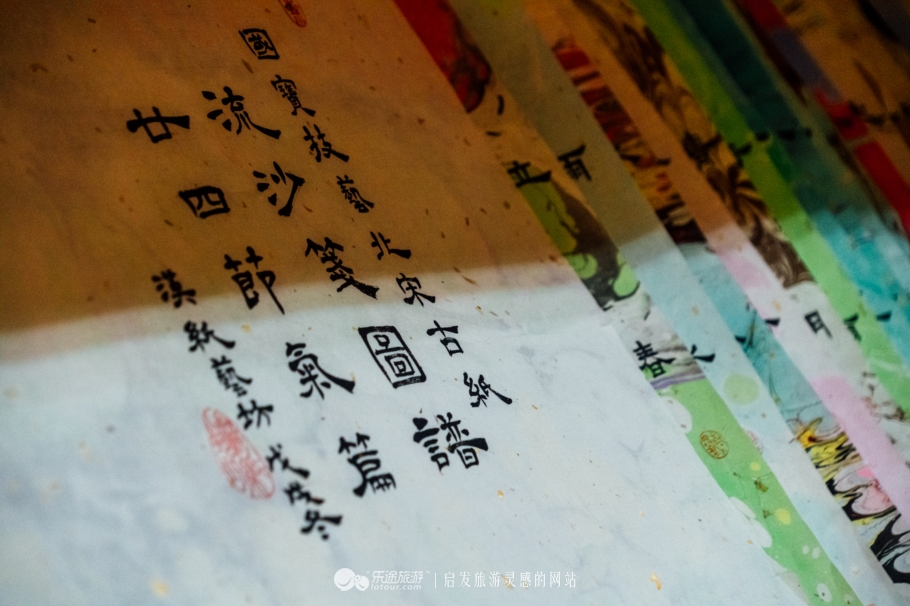 國寶技藝北宋古紙
流沙箋圖譜
廿四節氣篇
漢紙藝坊戊戌冬
立春
雨
乐途旅游
lotour.com
启发旅游灵感的网站